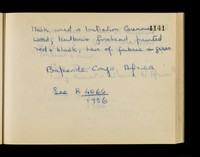 Mask used in Initiation Ceremony 4141
wood, bulbous forehead, painted
red & black, hair of fabric or grass
Bapende Congo, Africa
See R 4066
1956